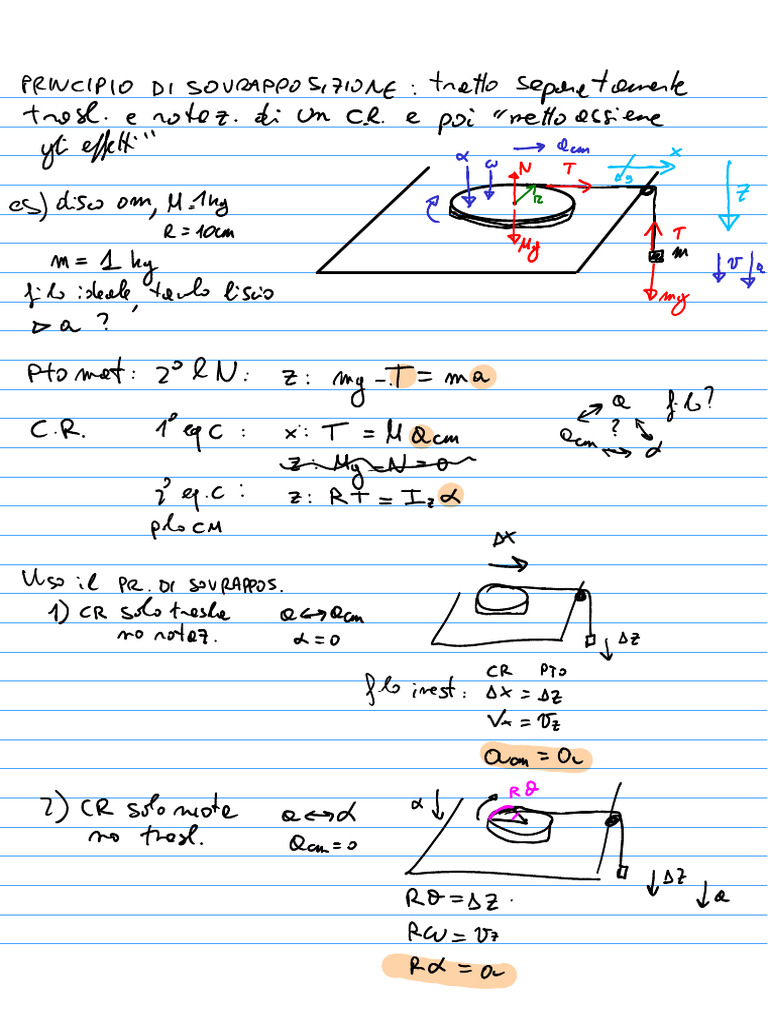 PRINCIPIO DI SOVRAPPOSIZIONE: tratto separatamente
trasl. e rotaz. di un C.R. e poi "metto assieme
gli effetti"
es) disco om, M=1kg
R=10cm
m = 1 kg
filo ideale, tavolo liscio
▷ a ?
α ω N R T acm Δg x
Mg
T m
mg
z
v a
Pto mat: 2° l N: z: mg - T = ma
C.R. 1° eq C: x: T = M acm
z: Mg - N = 0
2° eq.C: z: RT = Iz α
p lo CM
a filo?
acm ? α
Uso il PR. DI SOVRAPPOS.
1) CR solo trasla a ↔ acm
no rotaz. α = 0
Δx
Δz
CR PTO
filo inest: Δx = Δz
Vx = vz
acm = a
2) CR solo ruota a ↔ α
no trasl. acm = 0
α
Rθ
Δz a
Rθ = Δz
Rω = vz
Rα = a